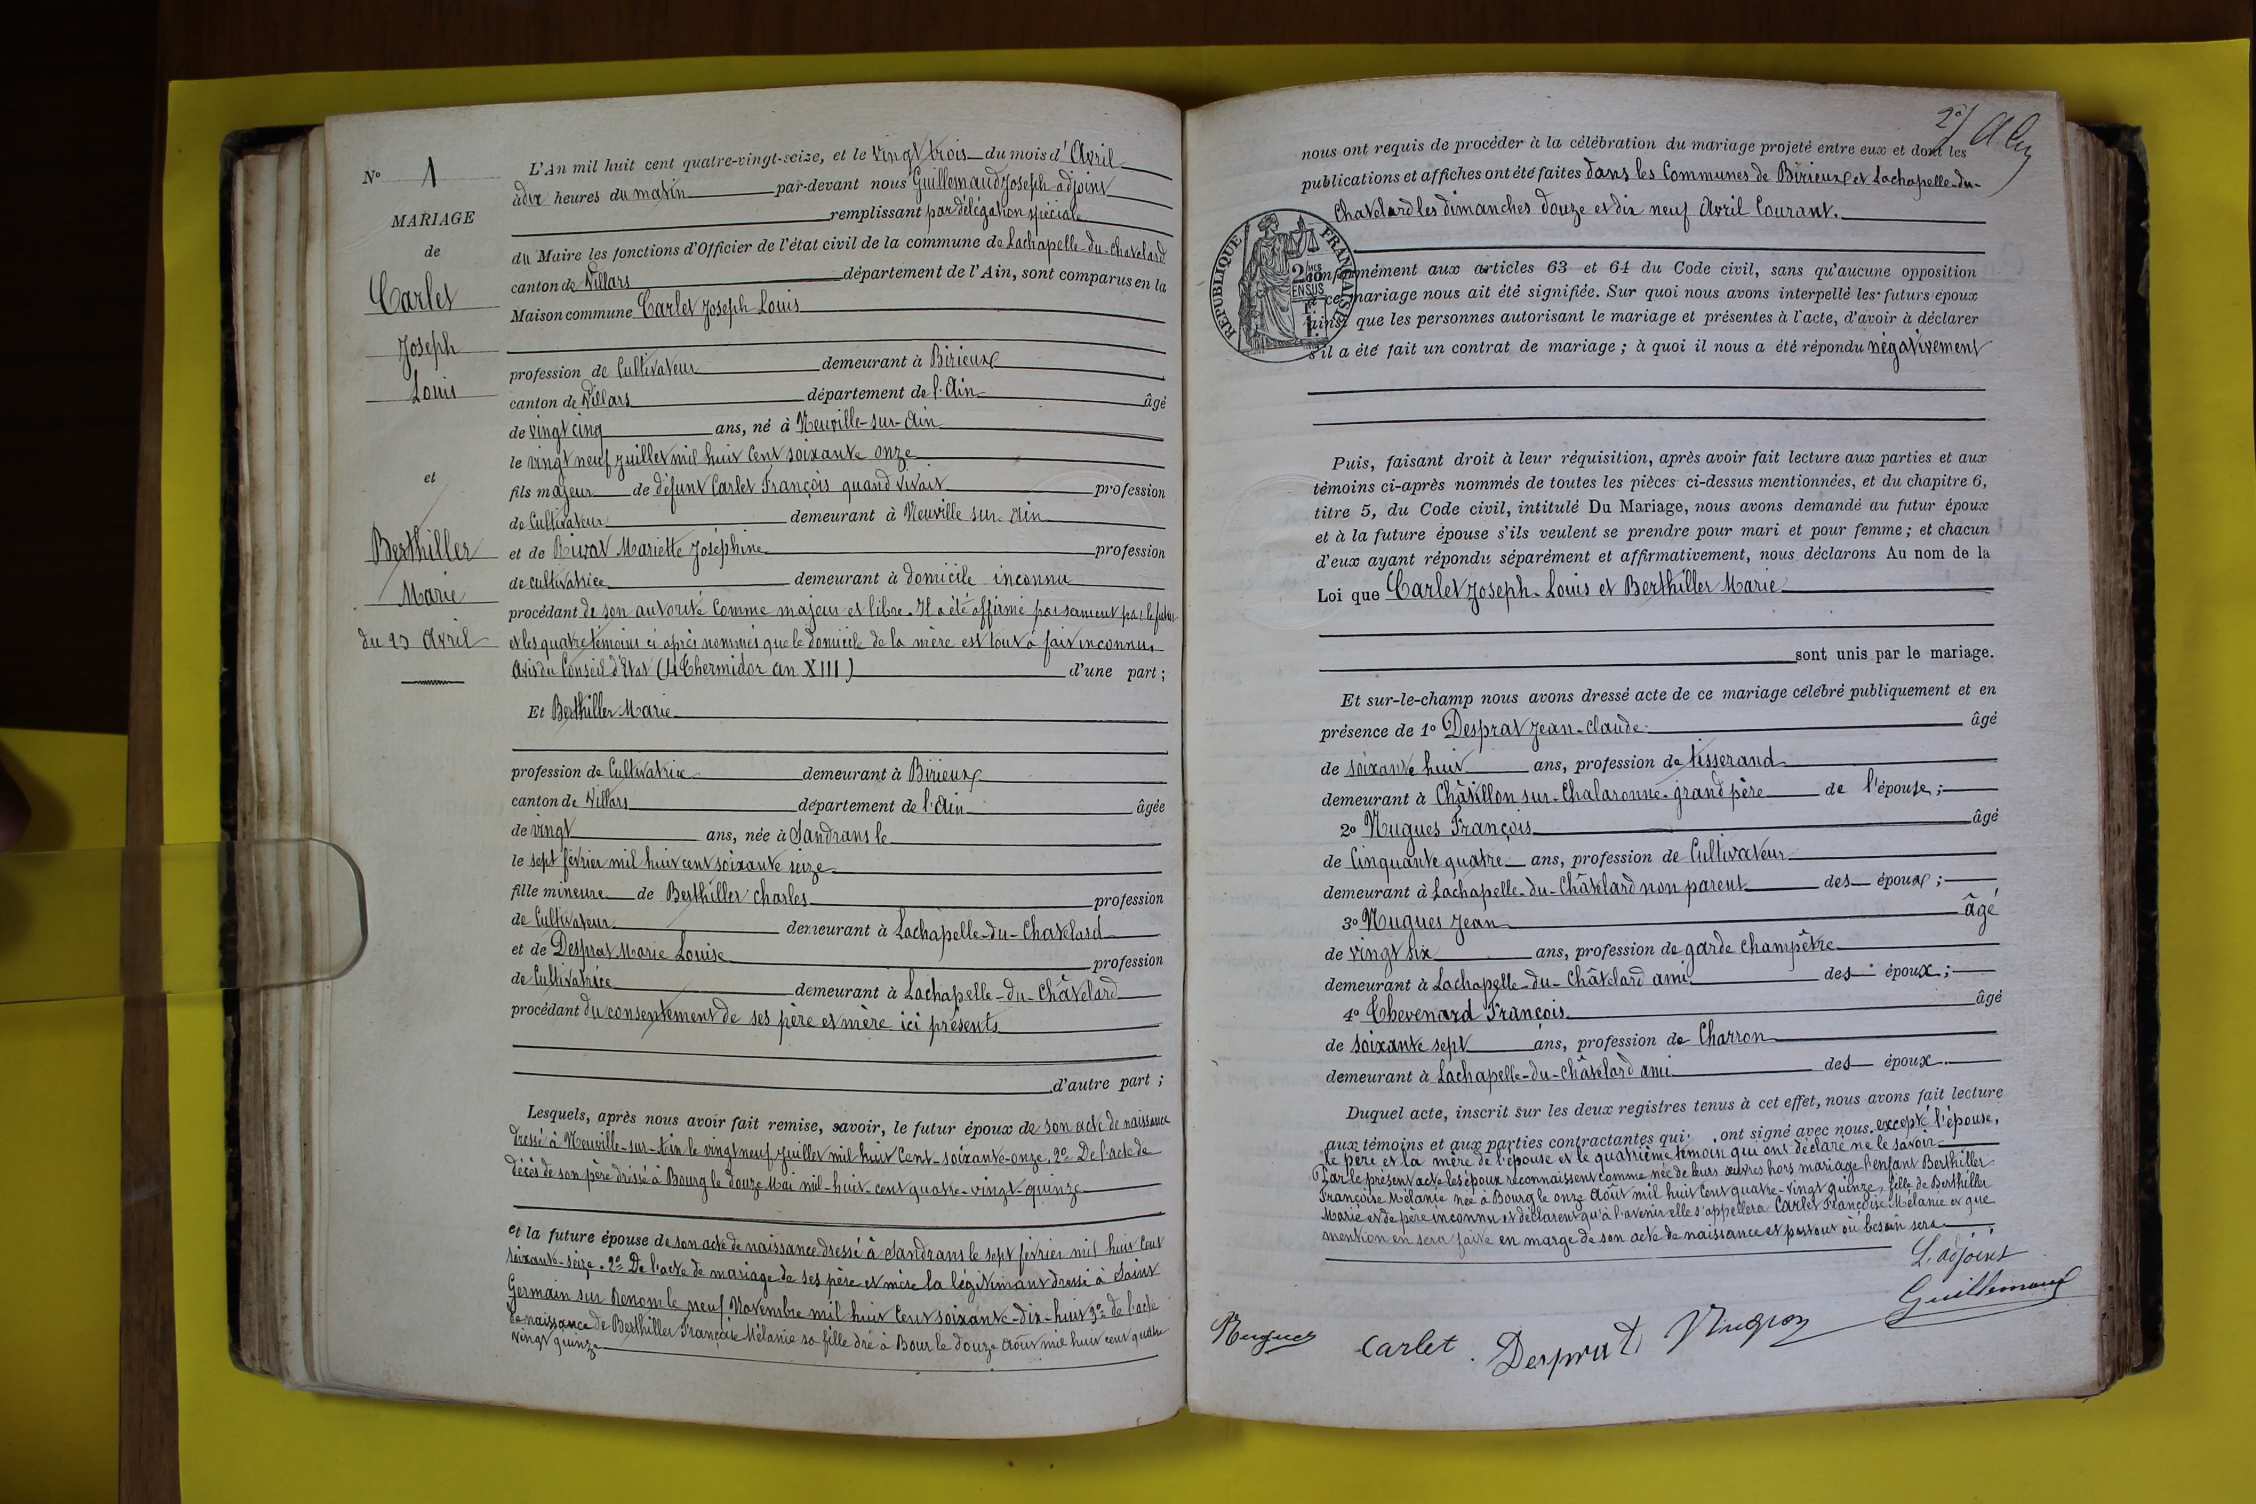 N° 1
MARIAGE
de
Carlet
Joseph
Louis
et
Berthiller
Marie
du 23 Avril
L'An mil huit cent quatre-vingt-seize, et le vingt trois du mois d'Avril
à dix heures du matin par-devant nous Guillemaud Joseph adjoint
remplissant par délégation spéciale
du Maire les fonctions d'Officier de l'état civil de la commune de Lachapelle-du-Chatelard
canton de Villars département de l'Ain, sont comparus en la
Maison commune Carlet Joseph Louis
profession de Cultivateur demeurant à Birieux
canton de Villars département de l'Ain âgé
de vingt cinq ans, né à Neuville-sur-Ain
le vingt neuf juillet mil huit cent soixante onze
fils majeur de défunt Carlet François quand vivait profession
de Cultivateur demeurant à Neuville sur Ain
et de Rivat Mariette Joséphine profession
de cultivatrice demeurant à domicile inconnu
procédant de son autorité comme majeur et libre. Il a été affirmé par serment par le futur
et les quatre témoins ci après nommés que le domicile de la mère est tout à fait inconnu
Avis du Conseil d'Etat (4 Thermidor an XIII) d'une part ;
Et Berthiller Marie
profession de Cultivatrice demeurant à Birieux
canton de Villars département de l'Ain âgée
de vingt ans, née à Sandrans le
le sept février mil huit cent soixante seize
fille mineure de Berthiller Charles profession
de Cultivateur demeurant à Lachapelle-du-Chatelard
et de Desprat Marie Louise profession
de Cultivatrice demeurant à Lachapelle-du-Châtelard
procédant du consentement de ses père et mère ici présents
d'autre part ;
Lesquels, après nous avoir fait remise, savoir, le futur époux de son acte de naissance
dressé à Neuville-sur-Ain le vingt neuf juillet mil huit cent-soixante-onze, 2° De l'acte de
décès de son père dressé à Bourg le douze Mai mil-huit-cent quatre-vingt-quinze
et la future épouse de son acte de naissance dressé à Sandrans le sept février mil huit cent
soixante-seize. 2° De l'acte de mariage de ses père et mère la légitimant dressé à Saint
Germain sur Renom le neuf Novembre mil huit cent soixante-dix-huit 3° de l'acte
de naissance de Berthiller Françoise Mélanie sa fille dré à Bour le douze Août mil huit cent quatre
vingt quinze
2°/
nous ont requis de procéder à la célébration du mariage projeté entre eux et dont les
publications et affiches ont été faites dans les Communes de Birieux et Lachapelle-du-
Chatelard les dimanches douze et dix neuf Avril Courant.
RÉPUBLIQUE FRANÇAISE
2/10mes EN SUS
conformément aux articles 63 et 64 du Code civil, sans qu'aucune opposition
à ce mariage nous ait été signifiée. Sur quoi nous avons interpellé les futurs époux
ainsi que les personnes autorisant le mariage et présentes à l'acte, d'avoir à déclarer
s'il a été fait un contrat de mariage ; à quoi il nous a été répondu négativement
Puis, faisant droit à leur réquisition, après avoir fait lecture aux parties et aux
témoins ci-après nommés de toutes les pièces ci-dessus mentionnées, et du chapitre 6,
titre 5, du Code civil, intitulé Du Mariage, nous avons demandé au futur époux
et à la future épouse s'ils veulent se prendre pour mari et pour femme ; et chacun
d'eux ayant répondu séparément et affirmativement, nous déclarons Au nom de la
Loi que Carlet Joseph-Louis et Berthiller Marie
sont unis par le mariage.
Et sur-le-champ nous avons dressé acte de ce mariage célébré publiquement et en
présence de 1° Desprat Jean-Claude âgé
de soixante huit ans, profession de tisserand
demeurant à Châtillon sur-Chalaronne-grand père de l'épouse ;
2° Nugues François âgé
de Cinquante quatre ans, profession de Cultivateur
demeurant à Lachapelle-du-Châtelard non parent des époux ;
3° Nugues Jean âgé
de vingt six ans, profession de garde champêtre
demeurant à Lachapelle-du-Châtelard ami des époux ;
4° Thevenard François âgé
de soixante sept ans, profession de Charron
demeurant à Lachapelle-du-Châtelard ami des époux
Duquel acte, inscrit sur les deux registres tenus à cet effet, nous avons fait lecture
aux témoins et aux parties contractantes qui ont signé avec nous excepté l'épouse,
le père et la mère de l'épouse et le quatrième témoin qui ont déclaré ne le savoir
Par le présent acte les époux reconnaissent comme née de leurs œuvres hors mariage l'enfant Berthiller
Françoise Mélanie née à Bourg le onze Août mil huit cent quatre-vingt quinze, fille de Berthiller
Marie et de père inconnu et déclarent qu'à l'avenir elle s'appellera Carlet Françoise Mélanie et que
mention en sera faite en marge de son acte de naissance et partout où besoin sera
L'adjoint
Guillemaud
Nugues Carlet Desprat Nugues